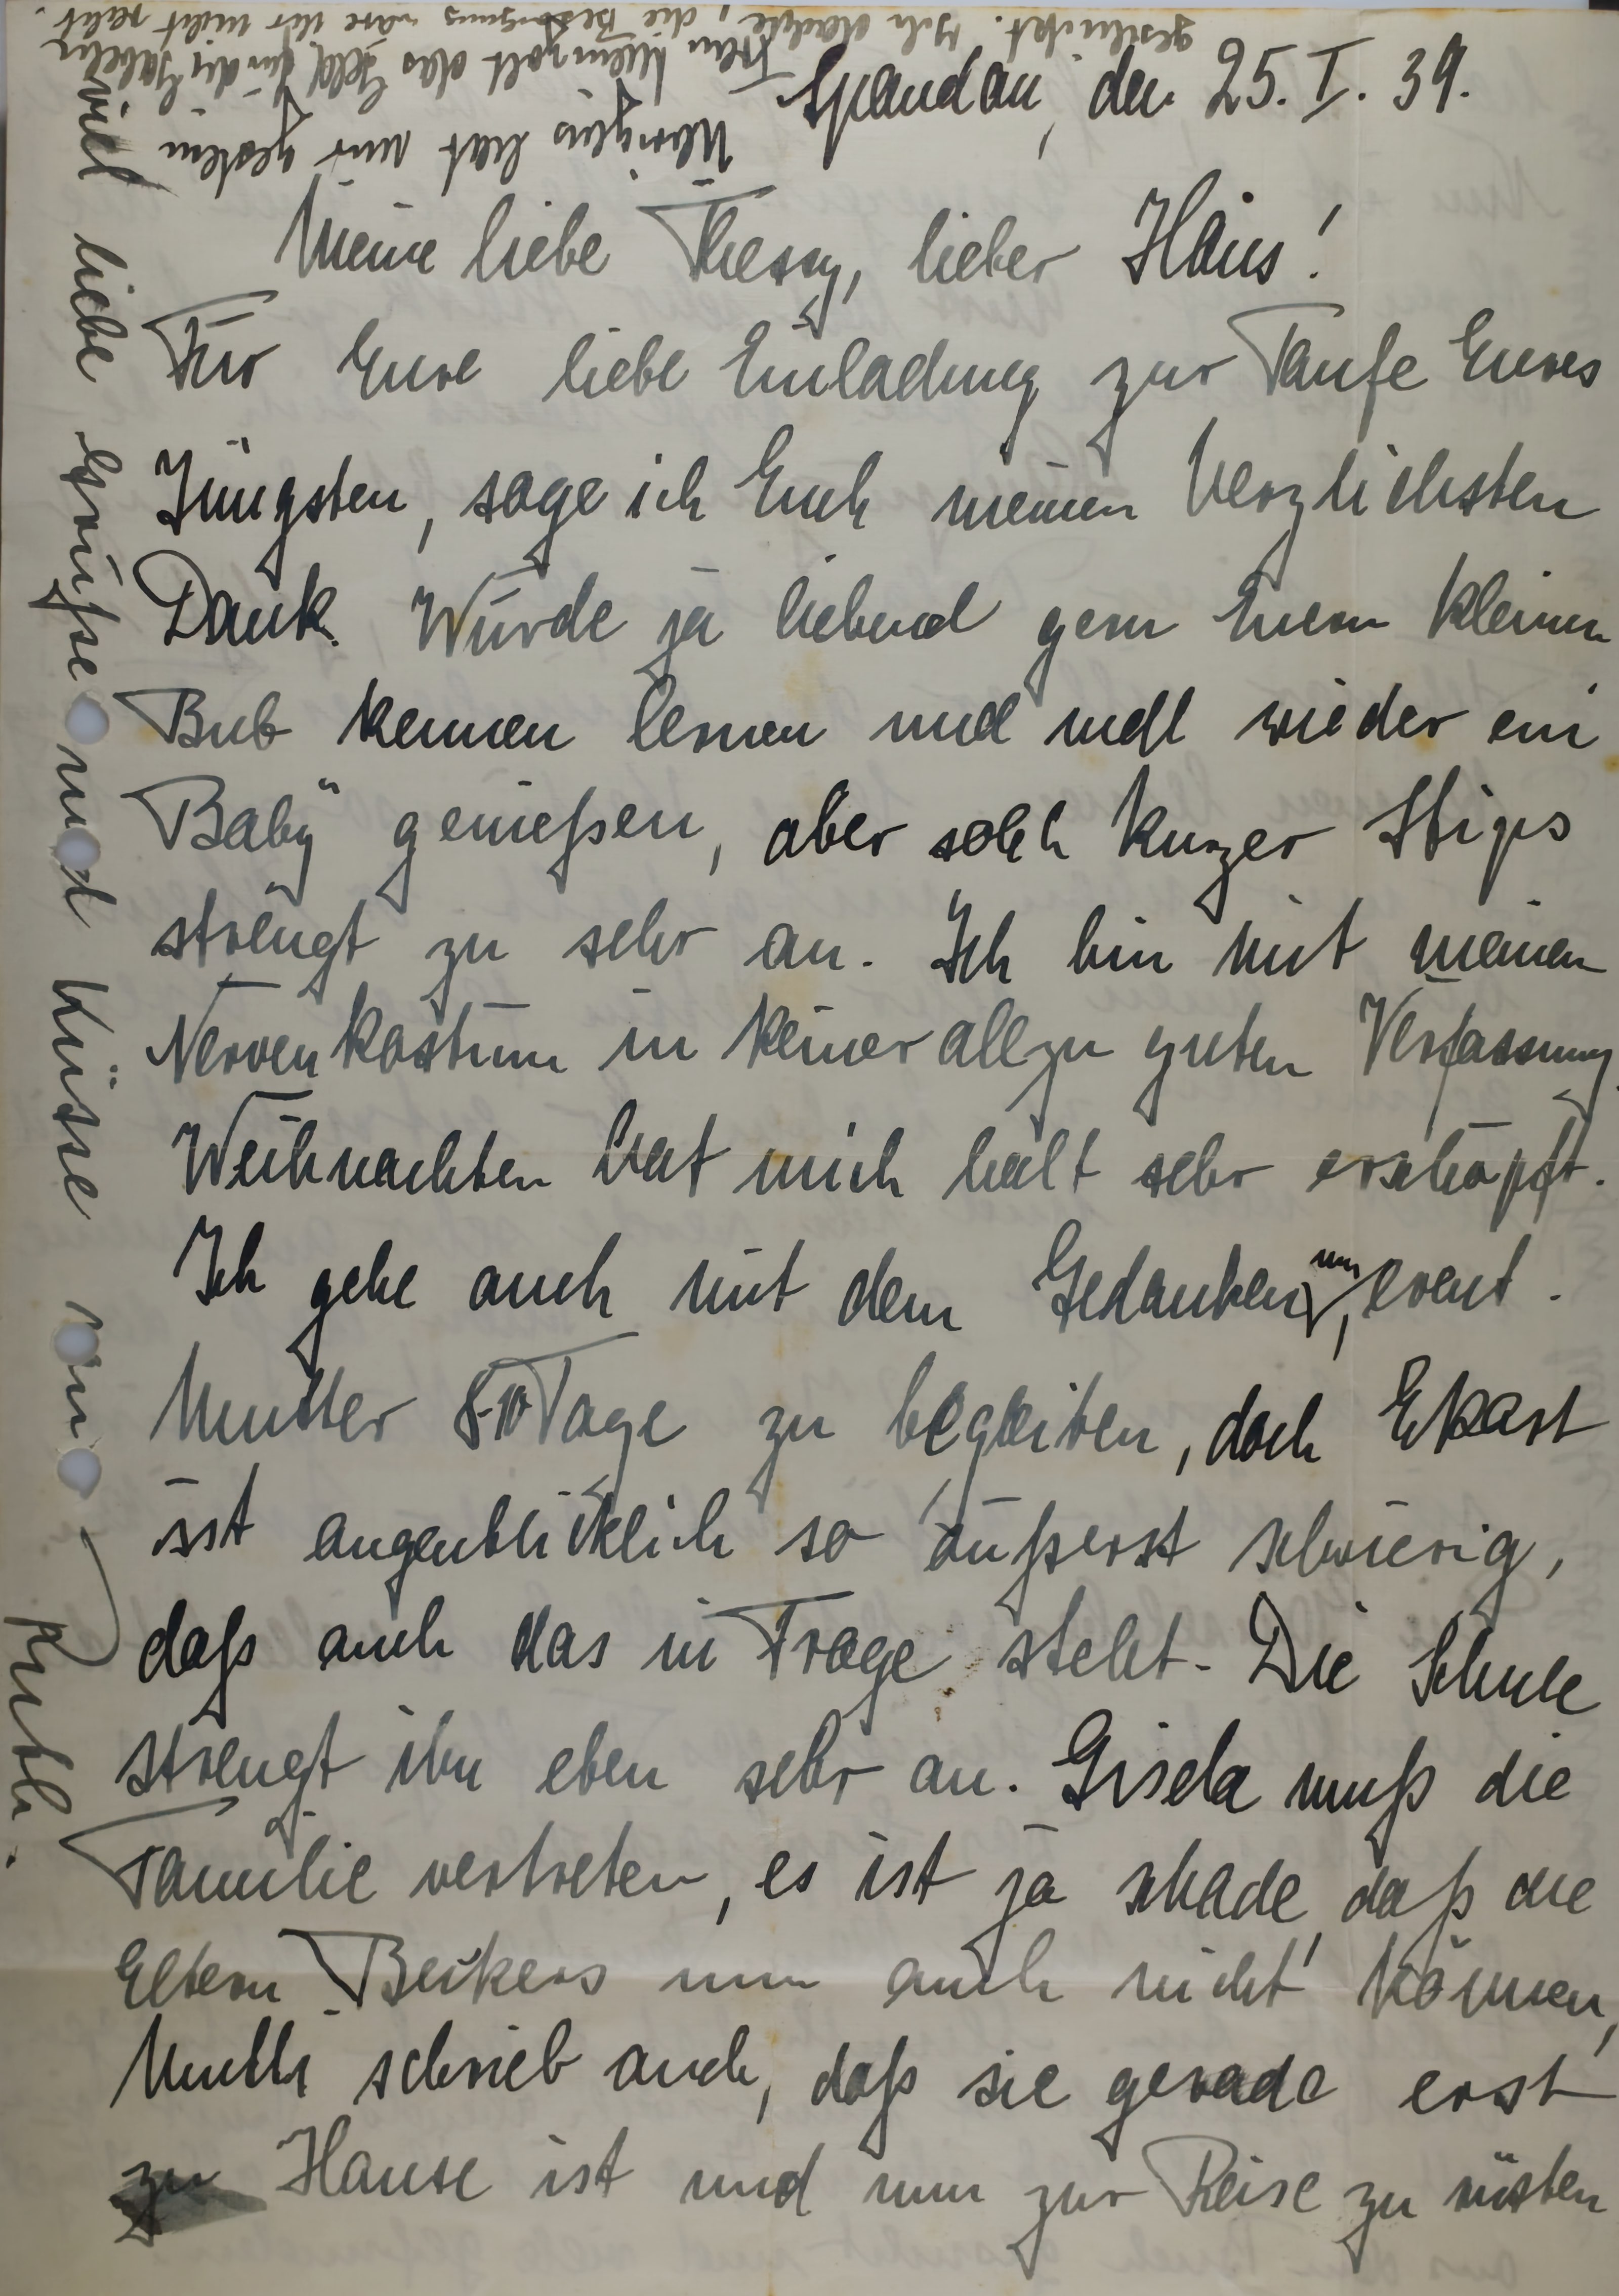 Spandau, den 25. I. 39.
Meine liebe Thessy, lieber Hans!
Für Eure liebe Einladung zur Taufe Eures
Jüngsten, sage ich Euch meinen herzlichsten
Dank. Würde ja liebend gern Euern kleinen
Bub kennen lernen und mal wieder ein
Baby" genießen, aber solch kurzer Stips
strengt zu sehr an. Ich bin mit meinen
Nervenkostüm in keiner allzu guten Verfassung
Weihnachten hat mich halt sehr erschöpft.
Ich gehe auch mit dem Gedanken um, event.
Mutter 8-10 Tage zu begleiten, doch Ekast
ist augenblicklich so äußerst schwierig,
daß auch das in Frage steht. Die Schule
strengt ihn eben sehr an. Gisela muß die
Familie vertreten, es ist ja schade, daß die
Eltern Beikers nun auch nicht können,
Mutti schrieb auch, daß sie gerade erst
zu Hause ist und nun zur Reise zu rüsten
viel liebe Grüße und Küsse von
Ruth.
Übrigens hat mir gestern
Frau das Geld für die Gabeln
geschickt. Ich dachte, die Besorgung wäre Dir nicht recht.